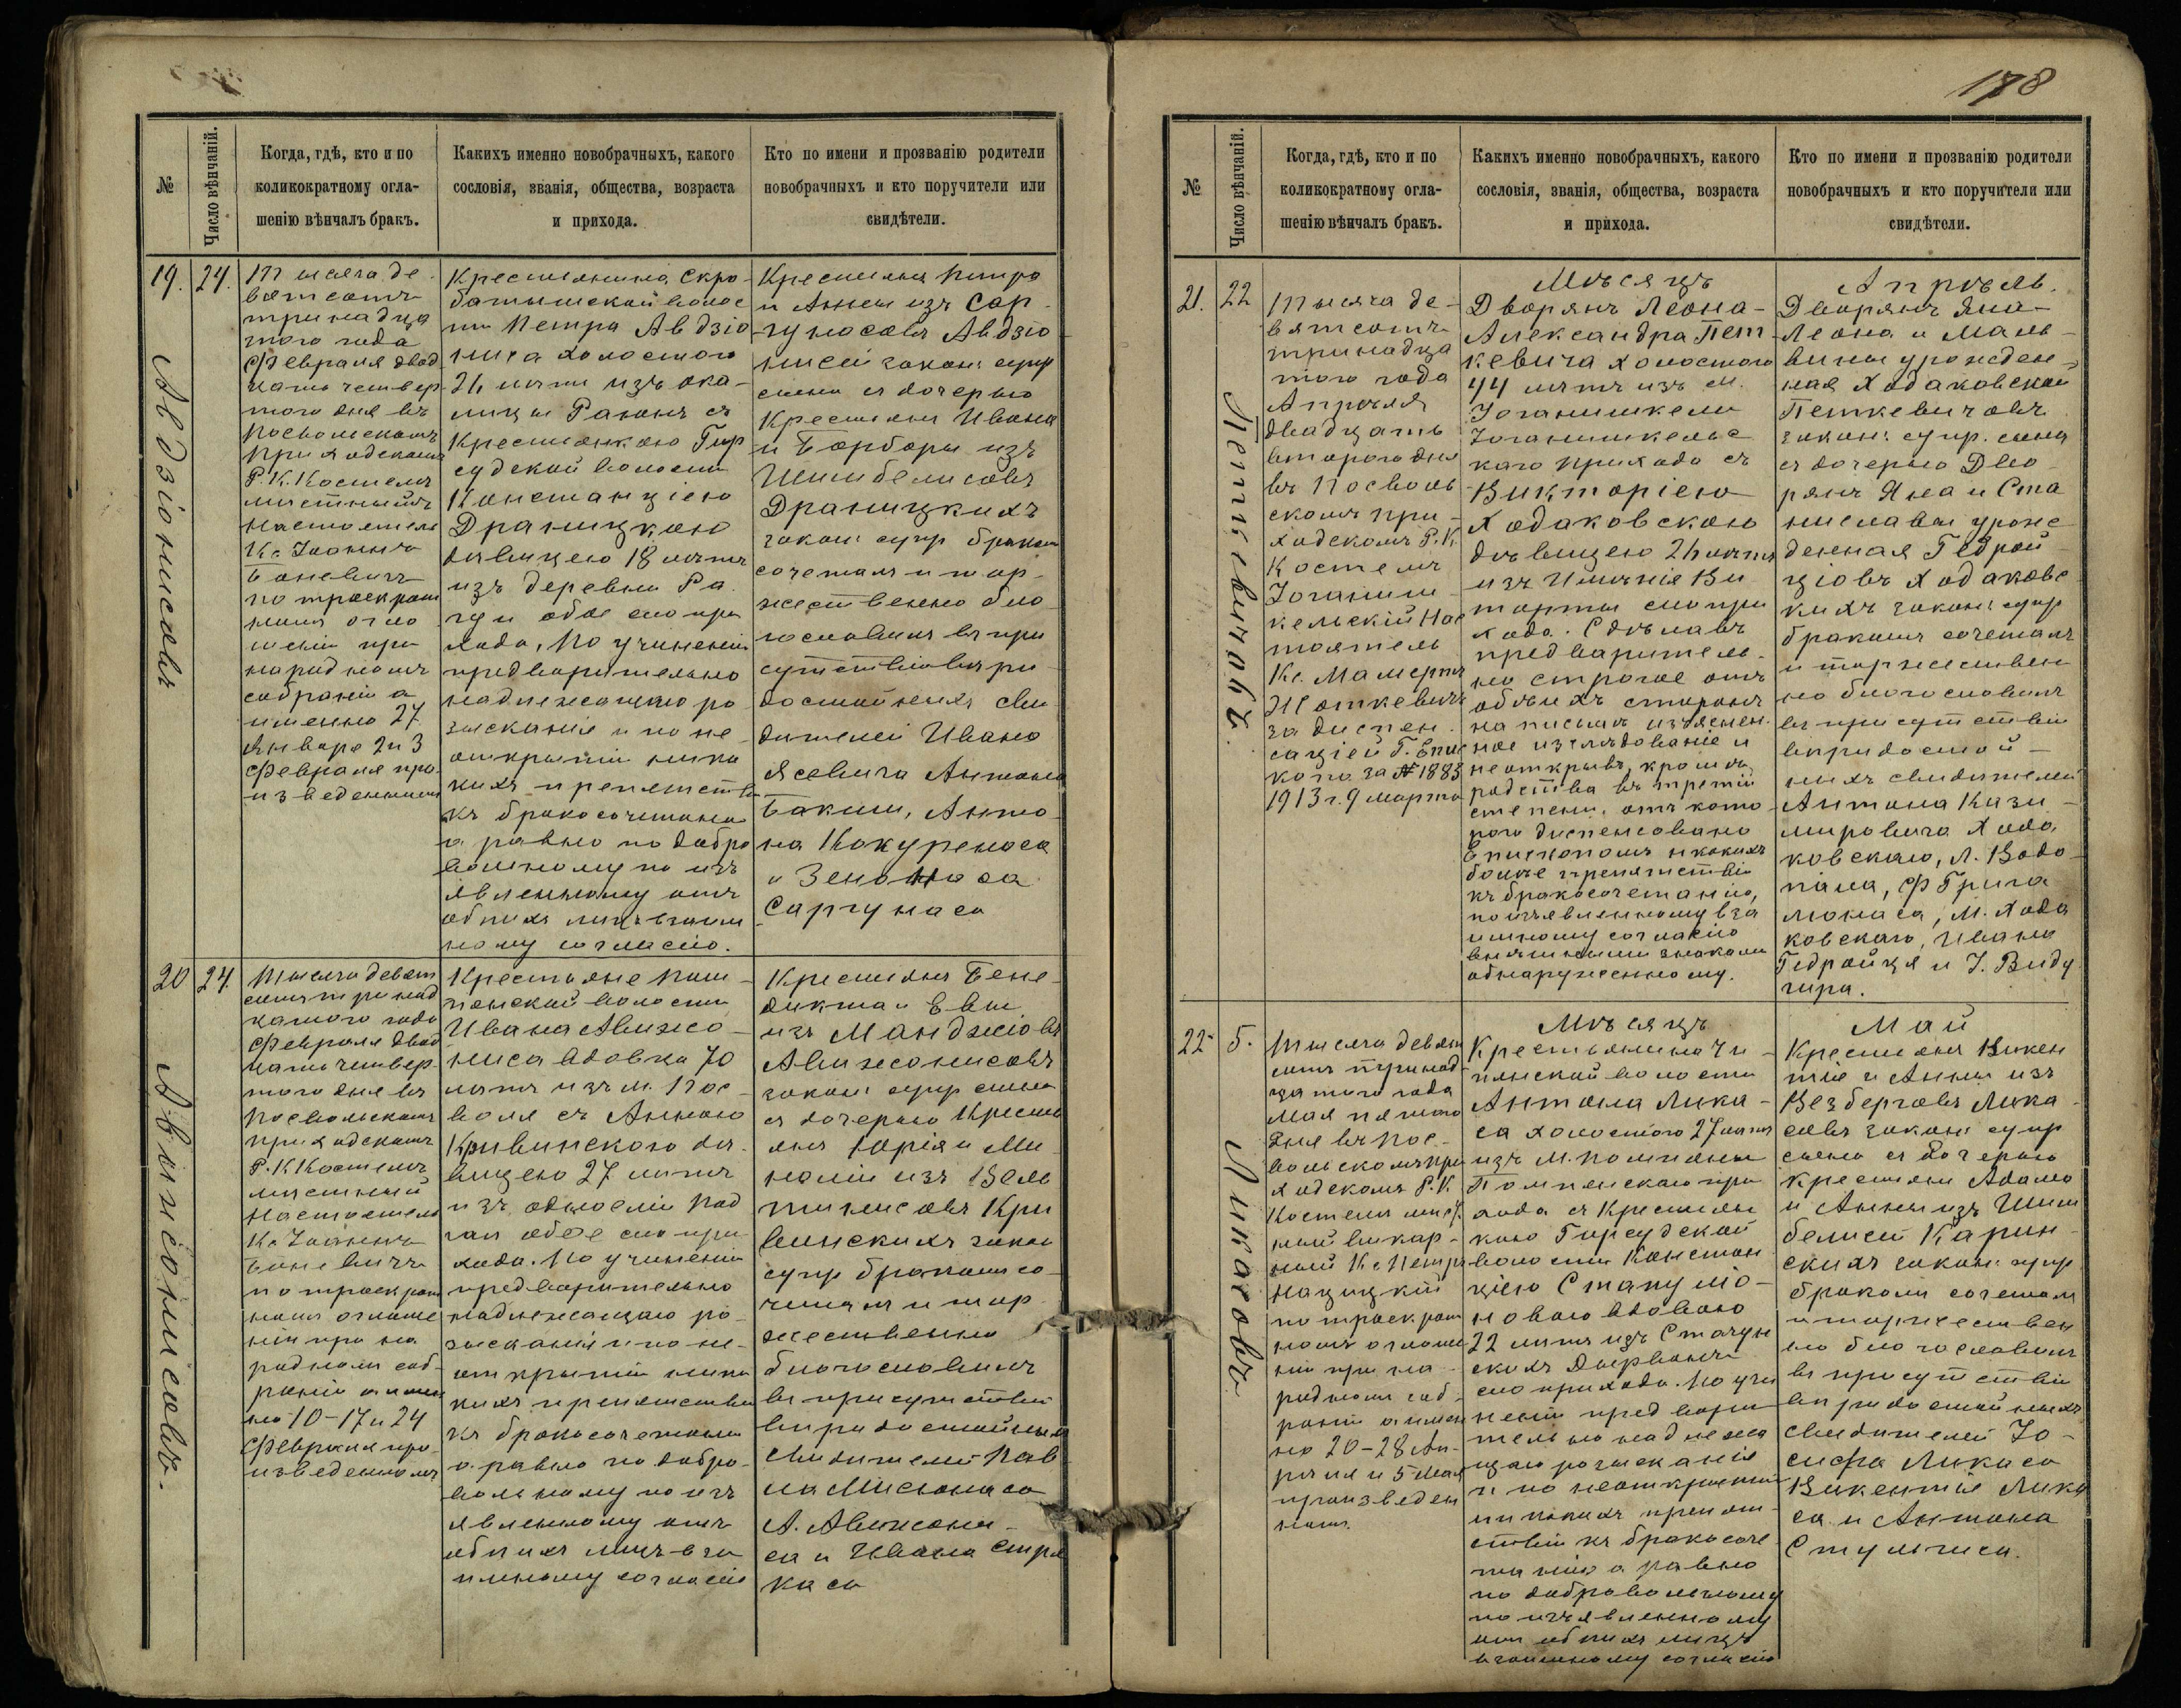 №
Число вѣнчаній.
Когда, гдѣ, кто и по
коликократному огла-
шенію вѣнчалъ бракъ.
Какихъ именно новобрачныхъ, какого
сословія, званія, общества, возраста
и прихода.
Кто по имени и прозванію родители
новобрачныхъ и кто поручители или
свидѣтели.
19.
24.
Авдзіонисовъ
Тысяча де-
вятсотъ
тринадца
того года
Февраля двад
цать четвер
того дня въ
Посвольскомъ
приходскомъ
Р. К. Костелѣ
мѣстный
настоятель
Кс. Іоаннъ
по троекрат
номъ огла
шеніи при
народномъ
собраніи а
именно 27
Января 2 и 3
Февраля про
изведенномъ
Крестьянина Скро-
батышской волос
ти Петра Авдзіо
ниса холостого
26 лѣтъ изъ ока-
лицы Раюнъ съ
Крестьянкою Гир
судской волости
Констанціею
Драницкою
дѣвицею 18 лѣтъ
изъ деревни Ра
гуи обое сего при
хода, по учиненіи
предварительно
надлежащаго ро
зысканія и по не-
открытіи ника
кихъ препятстви
къ бракосочетанію
а равно по добро
вольному по изъ
явленному отъ
обоихъ лицъ взаим
ному согласію.
Крестьянъ Петра
и Анны изъ Сар-
гуносовъ Авдзіо
нисей закон: супр
сына съ дочерью
Крестьянъ Ивана
и Барборы изъ
Шимбелисовъ
Драницкихъ
закон: супр бракомъ
сочеталъ и тор-
жественно бла
гословилъ въ при
сутствіи вѣро
достойныхъ сви
дителей Ивана
Ясевича Антона
Бакши, Анто
на Кокуреноса
и Зенонаса
Саргунаса
20
24.
Авижонисовъ.
Тысяча девят
сотъ тринад
цатого года
Февраля двад
цать четвер
того дня въ
Посвольскомъ
приходскомъ
Р. К Костелѣ
мѣстный
настоятель
Кс Іоаннъ
по троекрат
номъ оглаше
ніи при на
родномъ соб-
раніи а имен
но 10-17 и 24
Февраля про-
изведенномъ
Крестьяне Пом
пянской волости
Ивана Авижо-
ниса вдовца 70
лѣтъ изъ м. Пос-
воля съ Анною
Кривинского дѣ-
вицею 27 лѣтъ
изъ околоеліи Под
обое сего при
хода. По учиненіи
предварительно
надлежащаго ро-
зысканія и по не-
открытіи ника
кихъ препятствій
къ бракосочетанію
а равно по добро-
вольному по изъ
явленному отъ
обоихъ лицъ вза
имному согласію
Крестьянъ Бене-
дикта и Евы
изъ Манджіовъ
Авижонисовъ
закон: супр сына
съ дочерью Кресть
янъ Юрія и Ми
изъ Вель
Кри
винскихъ закон
супр бракомъ со-
четалъ и тор
жественно
благословилъ
въ присутствіи
вѣродостойныхъ
свидителей Пав
ла Мисюнаса
А. Авижони-
са и Ивана Стра
каса
178
№
Число вѣнчаній.
Когда, гдѣ, кто и по
коликократному огла-
шенію вѣнчалъ бракъ.
Какихъ именно новобрачныхъ, какого
сословія, званія, общества, возраста
и прихода.
Кто по имени и прозванію родители
новобрачныхъ и кто поручители или
свидѣтели.
21.
22
Петкевичовъ.
Тысяча де-
вятсотъ
тринадца
того года
Апрѣля
двадцать
второго дня
въ Посволь
скомъ при-
ходскомъ Р. К
Костелѣ
Іоганиш-
кельскій Нас
тоятель
Кс. Мамертъ
за диспен-
саціей Г. Епис
копа за № 1883
1913 г. 9 марта
Мѣсяцъ
Дворянъ Леона-
Александра Пет
кевича холостого
44 лѣтъ изъ м.
Іоганишкели
Іоганишкельс
каго прихода съ
Викторіею
Ходаковскою
дѣвицею 26 лѣтъ
изъ Имѣнія Ви
торты сего при
хода. Сдѣлавъ
предваритель-
но строгое отъ
обѣихъ сторонъ
на письмѣ изъяснен-
ное изслѣдованіе и
не открывъ, кромѣ
родства въ третій
степени, отъ кото
рого диспенсовано
Епископомъ никакихъ
болѣе препятствій
къ бракосочетанію,
по изъявленному вза
имному согласію
внѣшними знаками
обнаруженному.
Апрѣль.
Дворянъ Яна-
Леона и Маль
вины урожден-
ная Ходаковской
Петкевичовъ
закон: супр. сына
съ дочерью Дво
рянъ Яна и Ста
ниславы урож
денная Гедрой
ціовъ Ходаковс
кихъ закон: супр
бракомъ сочеталъ
и торжествен
но благословилъ
въ присутствіи
вѣродостой-
ныхъ свидителей
Антона Кази-
мировича Хода
ковскаго, Л. Водо
пала, Ф Грига
люнаса, М. Хода
ковскаго, Ивана
Гедройця и І. Виду
гира.
22
5.
Ликасовъ
Тысяча девят
сотъ тринад
цатого года
Мая пятого
дня въ Пос-
вольскомъ при
ходскомъ Р. К.
Костелѣ мѣст.
ный викар-
ный Кс Петръ
по троекрат
номъ оглаше
ніи при на-
родномъ соб-
раніи а имен
но 20-28 Ап-
рѣля и 5 Мая
произведен
номъ.
Мѣсяцъ
Крестьянина Чи-
пянской волости
Антона Лика-
са холостого 27 лѣтъ
изъ М. Помпяны
Помпянскаго при
хода съ Крестьян
кою Гирсудской
волости Констан
ціею Стапулю-
новою вдовою
22 лѣтъ изъ Стачун
скихъ Дырвонъ
сего прихода. По учи
неніи предвари
тельно надлежа
щаго розысканія
и по неоткрытіи
никакихъ препят-
ствій къ бракосоче
танію а равно
по добровольному
по изъявленному
отъ обоихъ лицъ
взаимному согласію
Май
Крестьянъ Викен
тія и Анны изъ
Везберговъ Лика-
совъ закон: супр
сына съ дочерью
Крестьянъ Адама
и Анны изъ Шим
белисй Карин-
скихъ закон: супр
бракомъ сочеталъ
и торжествен
но благословилъ
въ присутствіи
вѣродостойныхъ
свидителей Іо-
сифа Ликаса
Викентія Лика
са и Антона
Стульгиса.